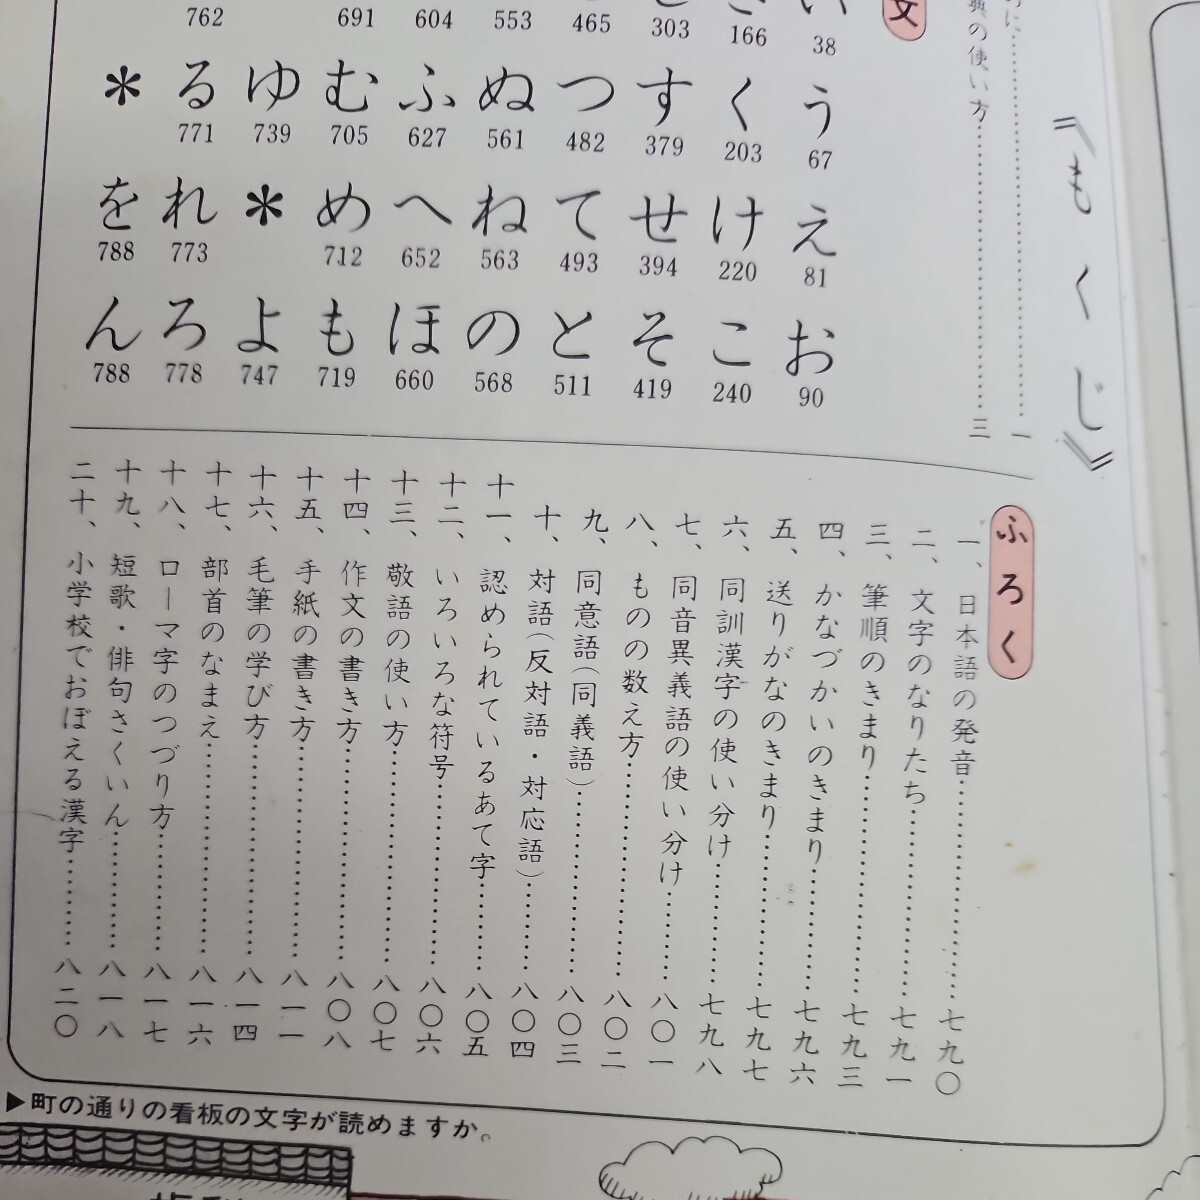 《もくじ》
に……………一
典の使い方……………三
文
い 38
166
303
465
553
604
691
762
う 67
く 203
す 379
つ 482
ぬ 561
ふ 627
む 705
ゆ 739
る 771
＊
え 81
け 220
せ 394
て 493
ね 563
へ 652
め 712
＊
れ 773
を 788
お 90
こ 240
そ 419
と 511
の 568
ほ 660
も 719
よ 747
ろ 778
ん 788
ふろく
一、日本語の発音……………七九〇
二、文字のなりたち……………七九一
三、筆順のきまり……………七九三
四、かなづかいのきまり……………七九六
五、送りがなのきまり……………七九七
六、同訓漢字の使い分け……………七九八
七、同音異義語の使い分け……………八〇一
八、ものの数え方……………八〇二
九、同意語（同義語）……………八〇三
十、対語（反対語・対応語）……………八〇四
十一、認められているあて字……………八〇五
十二、いろいろな符号……………八〇六
十三、敬語の使い方……………八〇七
十四、作文の書き方……………八〇八
十五、手紙の書き方……………八一一
十六、毛筆の学び方……………八一四
十七、部首のなまえ……………八一六
十八、ローマ字のつづり方……………八一七
十九、短歌・俳句さくいん……………八一八
二十、小学校でおぼえる漢字……………八二〇
▶町の通りの看板の文字が読めますか。